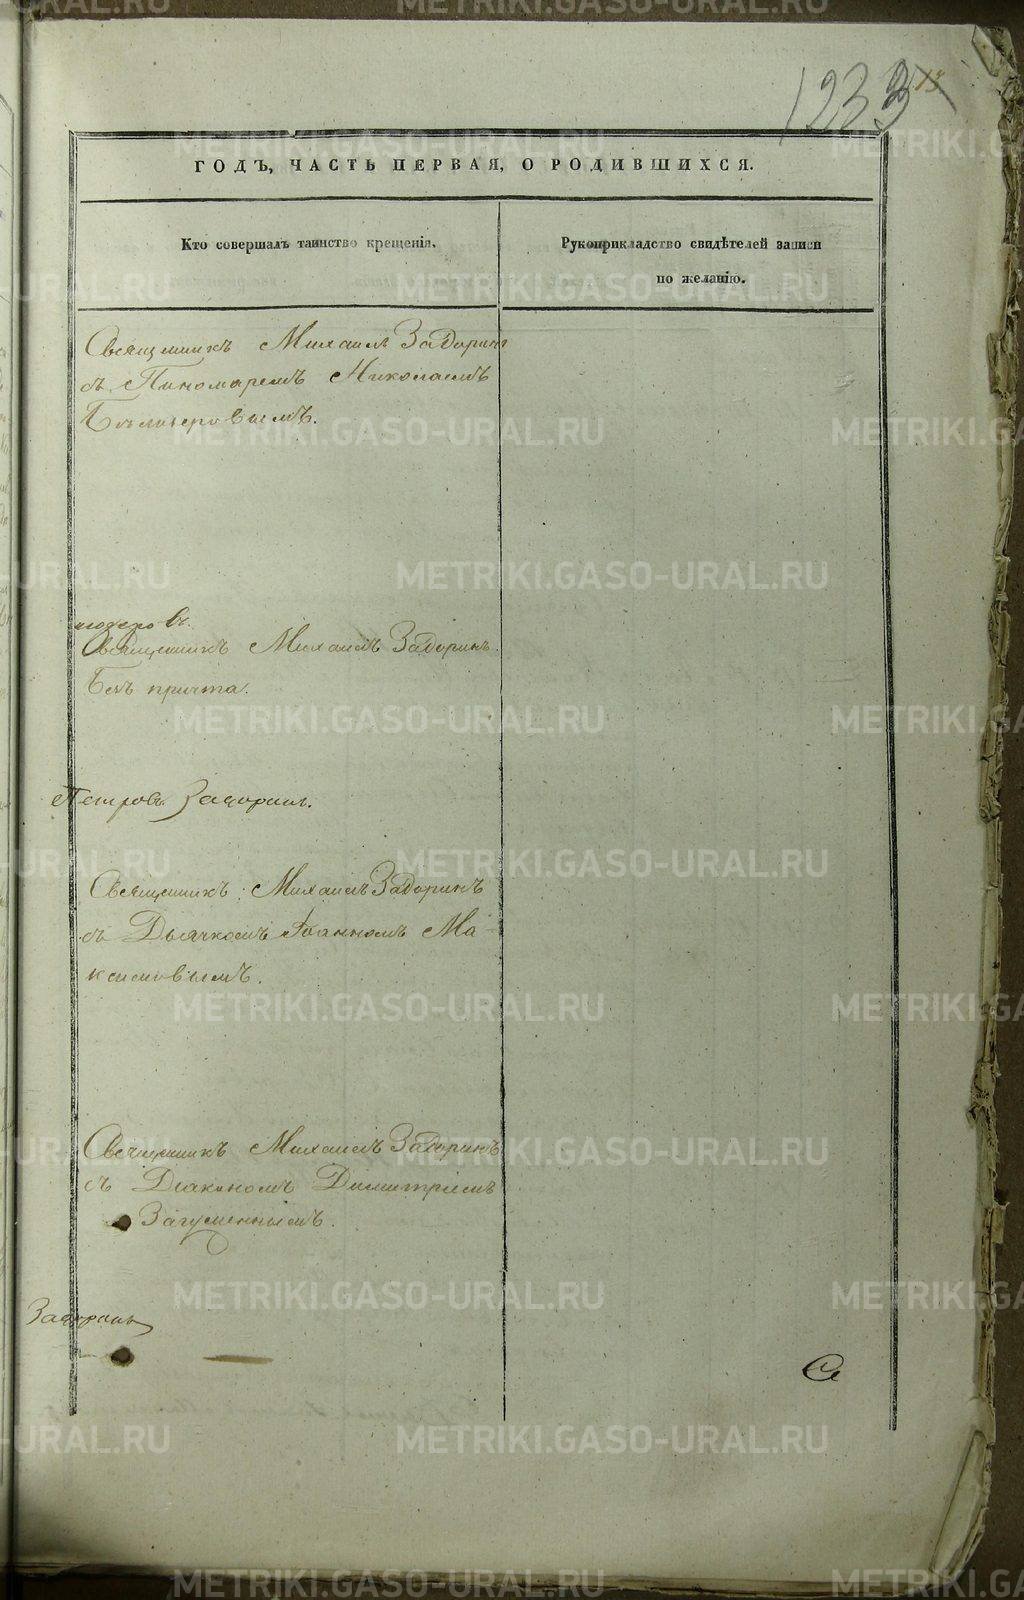 1233
13
ГОДЪ, ЧАСТЬ ПЕРВАЯ, О РОДИВШИХСЯ.
Кто совершалъ таинство крещенія.
Рукоприкладство свидѣтелей записи
по желанію.
Священникъ Михаилъ Задоринъ
съ Пономаремъ Николаемъ
Священникъ Михаилъ Задоринъ
Безъ причта.
Петровъ Задоринъ.
Священникъ Михаилъ Задоринъ
съ Дьячкомъ Іоанномъ Ма-
ксимовымъ.
Священникъ Михаилъ Задоринъ
съ Діакономъ Димитріемъ
Загуменнымъ.
Задоринъ
METRIKI.GASO-URAL.RU